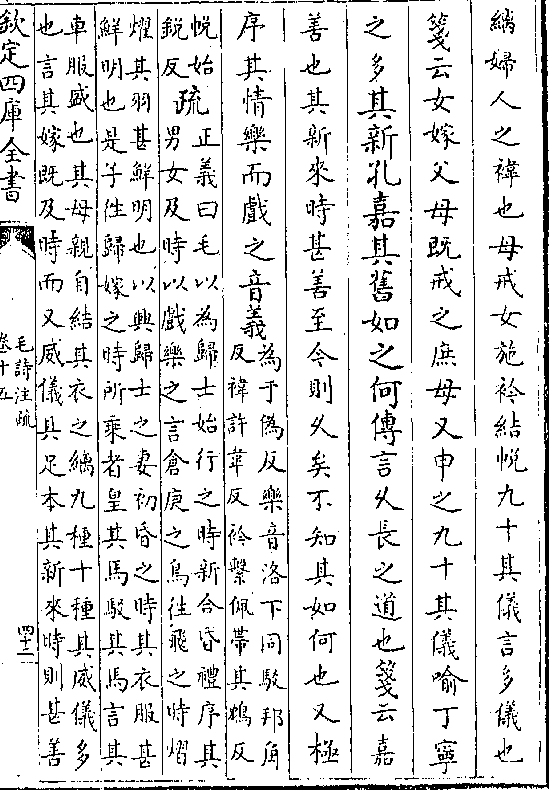 縭婦人之褘也母戒女施衿結帨九十其儀言多儀也
箋云女嫁父母既戒之庶母又申之九十其儀喻丁寧
之多其新孔嘉其舊如之何傳言久長之道也箋云嘉
善也其新來時甚善至今則久矣不知其如何也又極
序其情樂而戲之音義為于偽反樂音洛下同駁邦角
反褘許韋反衿繫佩帶其鴆反
帨始
銳反疏正義曰毛以為歸士始行之時新合昏禮序其
男女及時以戲樂之言倉庚之鳥往飛之時熠
燿其羽甚鮮明也以興歸士之妻初昏之時其衣服甚
鮮明也是子往歸嫁之時所乘者皇其馬駁其馬言其
車服盛也其母親自結其衣之縭九種十種其威儀多
也言其嫁既及時而又威儀具足本其新來時則甚善
欽定四庫全書
毛詩注疏
卷十五
四十二